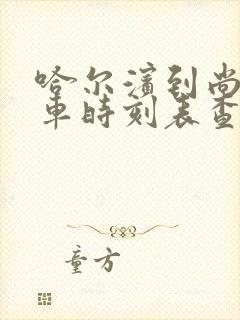 哈尔滨到尚
车时刻表查
童方